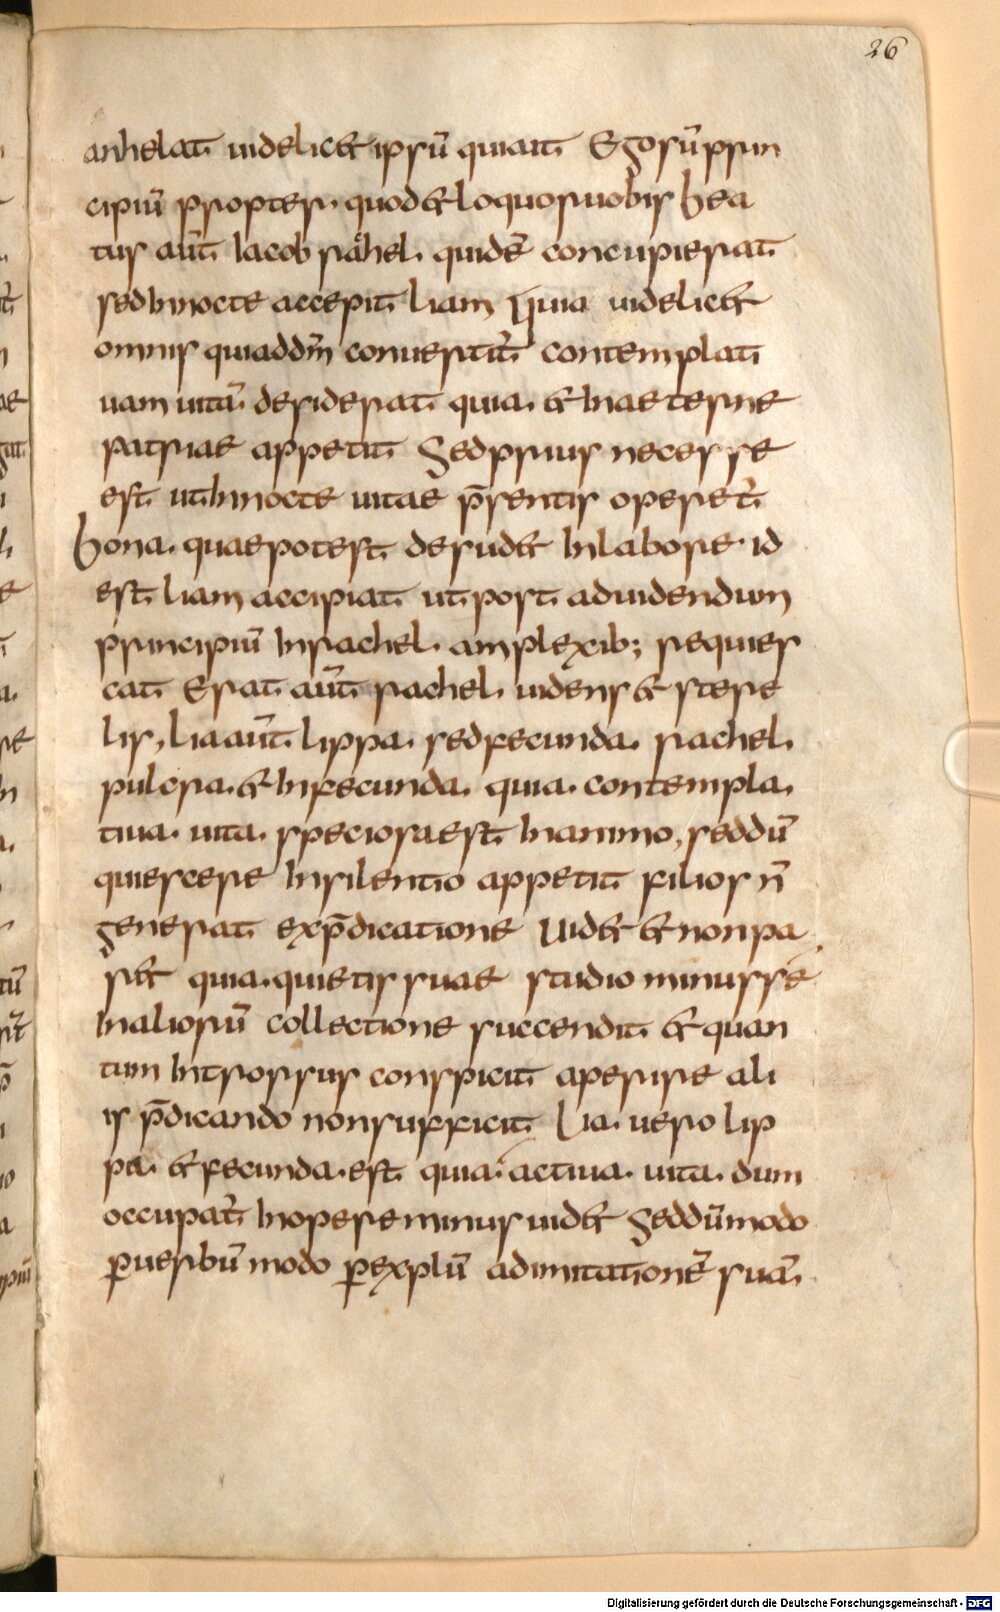 26
anhelat uidelicet ipsū quiait Egosū prin
cipiū propter quodetloquoruobis bea
tus aūt iacob rahel quidē concupierat
sedinnocte accepit liam Quia uidelicet
omnis quiaddn̄m conuertit̄ contemplati
uam uitā desiderat quia et inaeterne
patriae appetit Sedprius necesse
est utinnocte uitae p̄sentis operet̄
bona quaepotest desudet Inlabore id
est liam accipiat ut post aduidendum
principiū Inrachel amplexib; requies
cat Erat aūt rachel uidens et stere
lis, lia aūt lippa sedfecunda rachel
pulcra et Infecunda quia contempla
tiua uita speciosaest Inanimo, seddū
quiescere Insilentio appetit filios n̄
generat exp̄dicatione Uidet et nonpa
ret quia quietis suae studio minus se
Inaliorū collectione succendit et quan
tum Introrsus conspicit aperire ali
is p̄dicando nonsufficit Lia uero lip
pa et fecunda est quia actiua uita dum
occupat̄ Inopere minus uidet Seddūmodo
ꝑuerbū modo ꝑexplū adimitationē suā
Digitalisierung gefördert durch die Deutsche Forschungsgemeinschaft - DFG